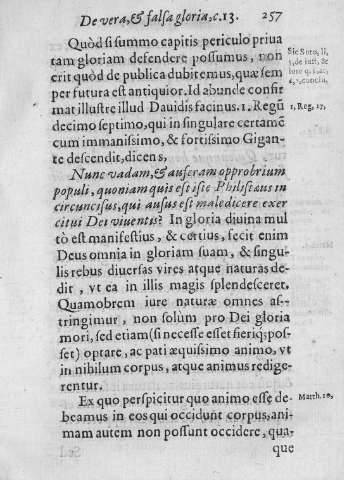 De vera, & falsa gloria, c. 13. 257
Quòd si summo capitis periculo priua
tam gloriam defendere possumus, non
erit quòd de publica dubitemus, quæ sem
per futura est antiquior. Id abunde confir
mat illustre illud Dauidis facinus. 1. Regũ
decimo septimo, qui in singulare certamẽ
cum immanissimo, & fortissimo Gigan-
te descendit, dicens,
Nunc vadam, & auferam opprobrium
populi, quoniam quis est iste Philistæus in
circuncisus, qui ausus est maledicere exer
citui Dei viuentis? In gloria diuina mul
tò est manifestius, & certius, fecit enim
Deus omnia in gloriam suam, & singu-
lis rebus diuersas vires atque naturas de-
dit, vt ea in illis magis splendesceret.
Quamobrem iure naturæ omnes as-
tringimur, non solùm pro Dei gloria
mori, sed etiam (si necesse esset fieriq; pos-
set) optare, ac pati æquissimo animo, vt
in nihilum corpus, atque animus redige-
rentur.
Ex quo perspicitur quo animo esse de-
beamus in eos qui occidunt corpus, ani-
mam autem non possunt occidere, qua-
que
Sic Soto, li,
5, de iust, &
iure q, 1, ar,
1, Reg, 17,
Matth. 10,